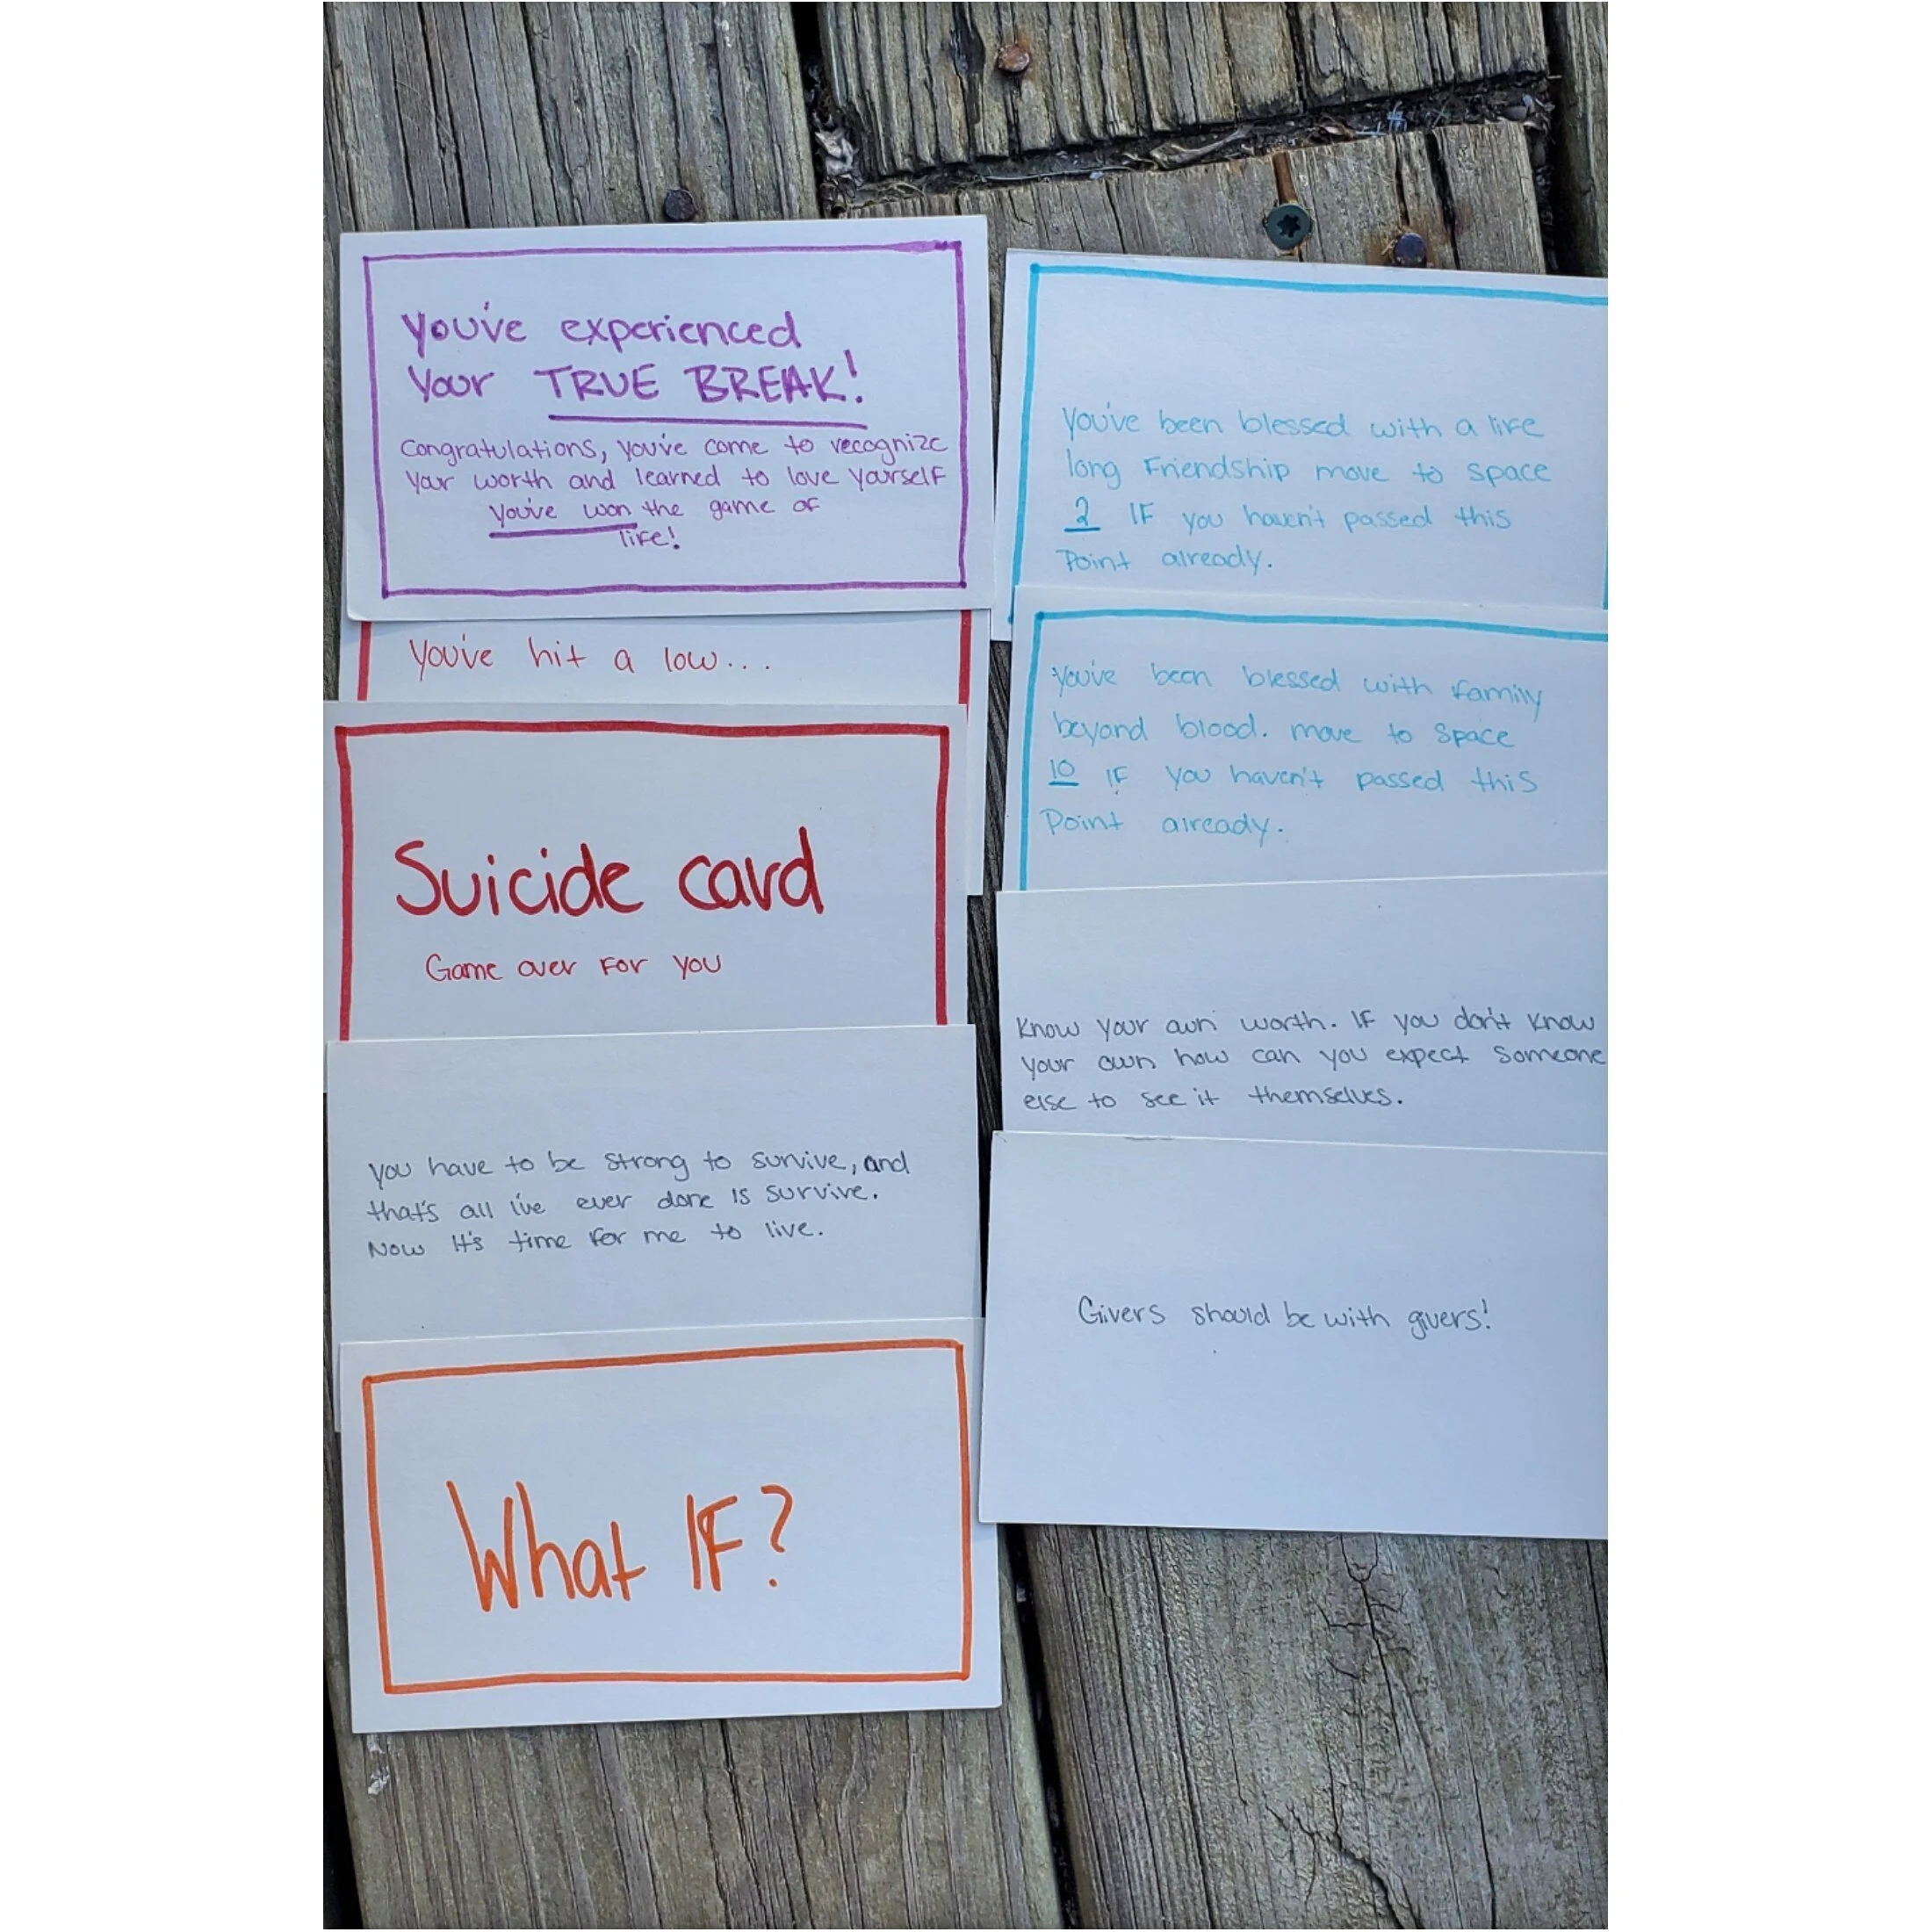 You've experienced
Your TRUE BREAK!
Congratulations, you've come to recognize
Your worth and learned to love yourself
You've won the game of
life!
You've hit a low...
Suicide card
Game over For you
you have to be strong to survive, and
that's all i've ever done is survive.
Now it's time for me to live.
What IF?
You've been blessed with a life
long Friendship move to space
2 IF you haven't passed this
Point already.
You've been blessed with family
beyond blood. move to space
10 IF you haven't passed this
Point already.
Know your own worth. IF you don't know
your own how can you expect someone
else to see it themselves.
Givers should be with givers!